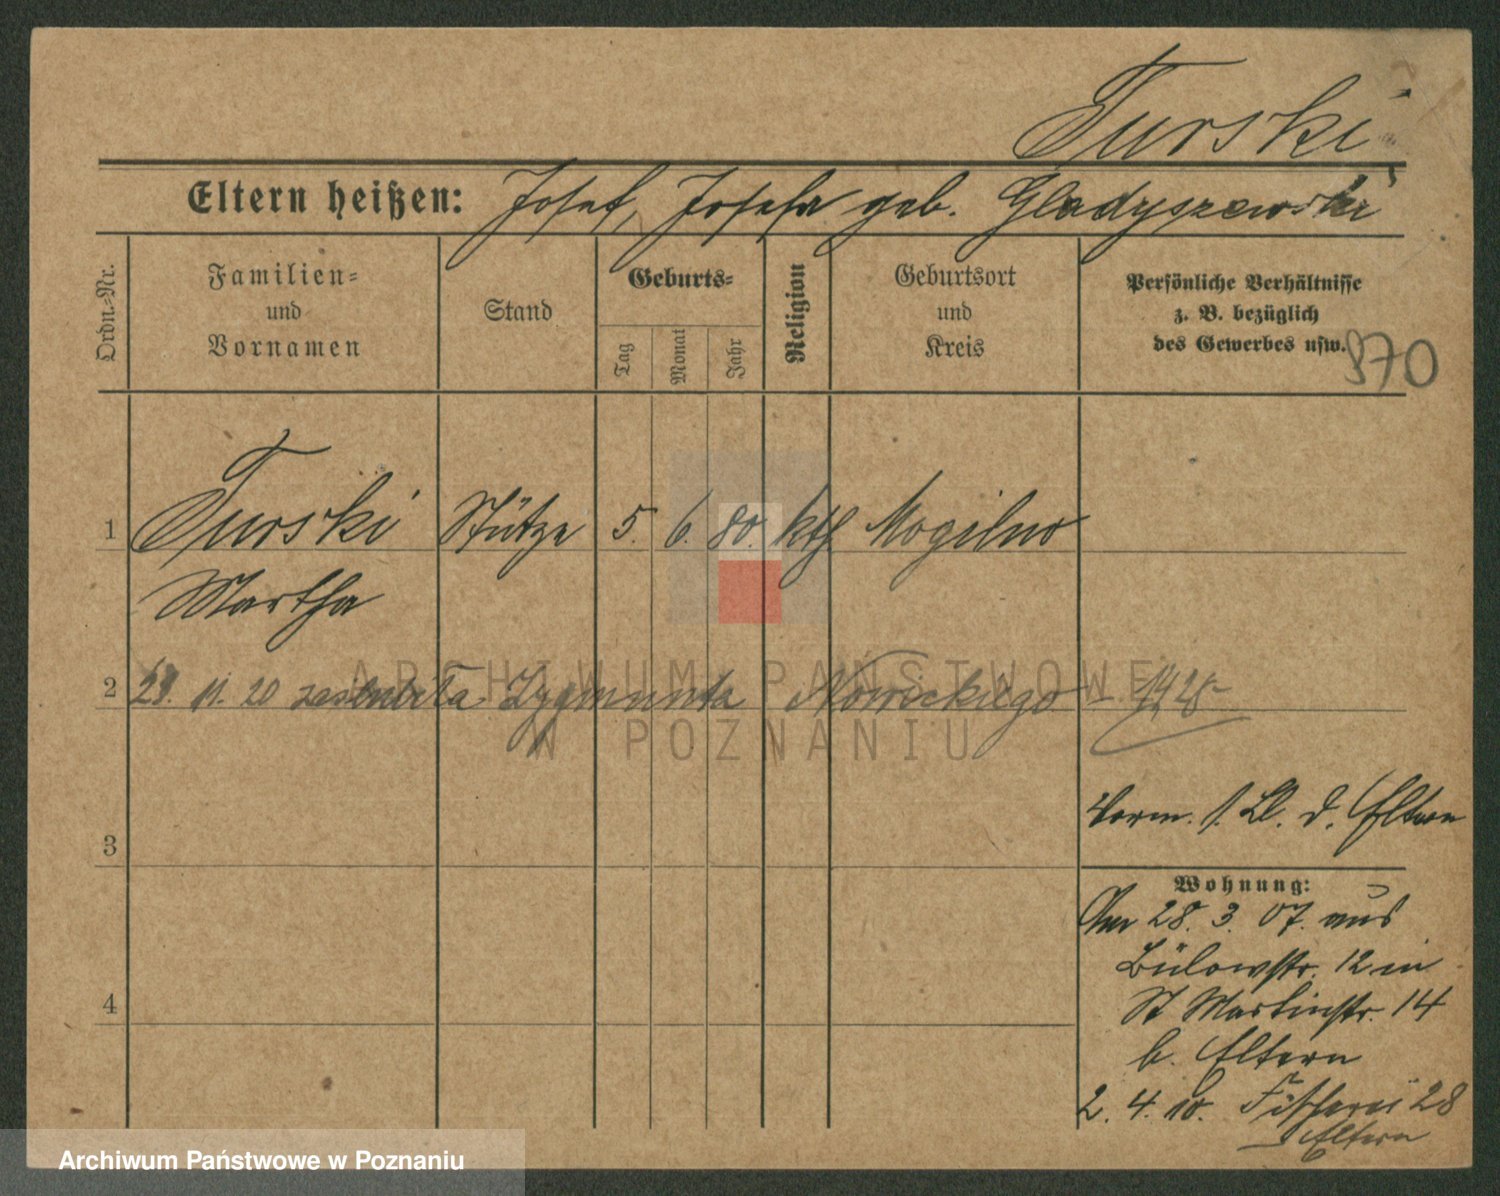 Turski
Eltern heißen: Josef, Josefa geb. Gladyszewski
Ordn.-Nr.
Familien-
und
Vornamen
Stand
Geburts-
Tag
Monat
Jahr
Religion
Geburtsort
und
Kreis
Persönliche Verhältnisse
z. B. bezüglich
des Gewerbes usw.
970
1 Turski Stütze 5. 6. 80. kth. Mogilno
Martha
2 29. 11. 20 zaślubiła Zygmunta Nowickiego - 
3
4
Verm. s. Bl. d. Eltern
Wohnung:
Am 28. 3. 07. aus
Bülowstr. 12 in
St Martinstr. 14
b. Eltern
2. 4. 10. Fischerei 28
Eltern
ARCHIWUM PAŃSTWOWE
W POZNANIU
Archiwum Państwowe w Poznaniu